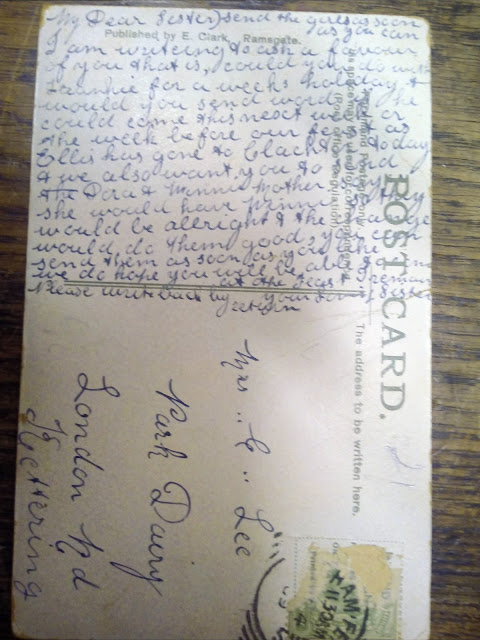 My Dear Sister) send the girls as soon
as you can
Published by E. Clark, Ramsgate.
I am writing to ask a favour
of you that is, could you do with
Frankie for a weeks holiday &
would you send word if he
could come this next week or
the week before our feast as
Ellis has gone to Blackpool today
& we also want you to send
the Dora & Winnie Mother
she would have Winnie
would be allright & the change
would do them good, you
send them as soon as you
we do hope you will be able
at the feast
Please write back by
return
your loving Sister
POST CARD.
The address to be written here.
Mrs .. C .. Lee
Park Dairy
London Rd
Kettering